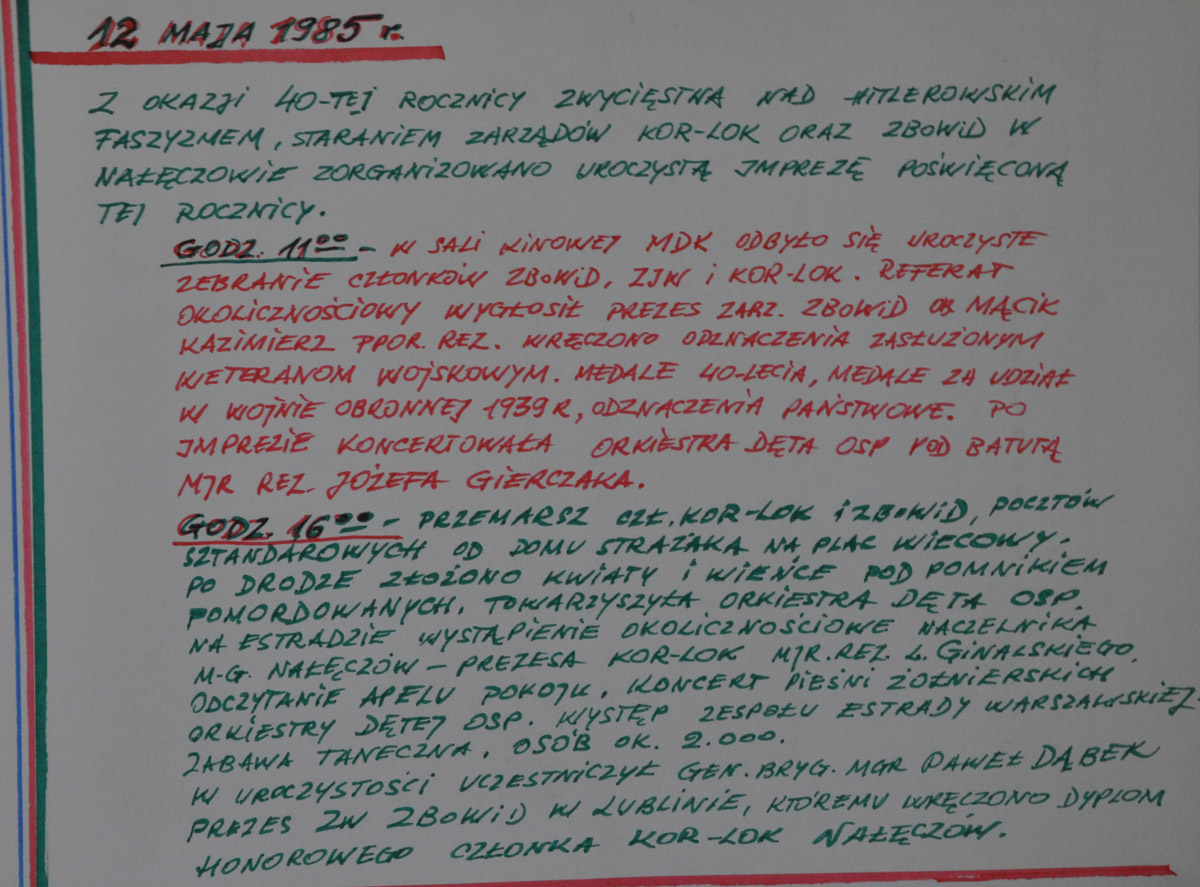 12 MAJA 1985 r.
Z OKAZJI 40-TEJ ROCZNICY ZWYCIĘSTWA NAD HITLEROWSKIM
FASZYZMEM, STARANIEM ZARZĄDÓW KOR-LOK ORAZ ZBoWiD W
NAŁĘCZOWIE ZORGANIZOWANO UROCZYSTĄ IMPREZĘ POŚWIĘCONĄ
TEJ ROCZNICY.
GODZ. 11⁰⁰ - W SALI KINOWEJ MDK ODBYŁO SIĘ UROCZYSTE
ZEBRANIE CZŁONKÓW ZBoWiD, ZIW i KOR-LOK. REFERAT
OKOLICZNOŚCIOWY WYGŁOSIŁ PREZES ZARZ. ZBOWiD OB MĄCIK
KAZIMIERZ PPOR. REZ. WRĘCZONO ODZNACZENIA ZASŁUŻONYM
WETERANOM WOJSKOWYM. MEDALE 40-LECIA, MEDALE ZA UDZIAŁ
W WOJNIE OBRONNEJ 1939 R, ODZNACZENIA PAŃSTWOWE. PO
IMPREZIE KONCERTOWAŁA ORKIESTRA DĘTA OSP POD BATUTĄ
MJR REZ. JÓŻEFA GIERCZAKA.
GODZ. 16⁰⁰ - PRZEMARSZ CZŁ. KOR-LOK i ZBoWiD, POCZTÓW
SZTANDAROWYCH OD DOMU STRAŻAKA NA PLAC WIECOWY.
PO DRODZE ZŁOŻONO KWIATY I WIEŃCE POD POMNIKIEM
POMORDOWANYCH. TOWARZYSZYŁA ORKIESTRA DĘTA OSP.
NA ESTRADZIE WYSTĄPIENIE OKOLICZNOŚCIOWE NACZELNIKA
M-G. NAŁĘCZÓW - PREZESA KOR-LOK MJR. REZ. L. GINALSKIEGO.
ODCZYTANIE APELU POKOJU. KONCERT PIEŚNI ŻOŁNIERSKICH
ORKIESTRY DĘTEJ OSP. WYSTĘP ZESPOŁU ESTRADY WARSZAWSKIEJ.
ZABAWA TANECZNA. OSÓB OK. 2.000.
W UROCZYSTOŚCI UCZESTNICZYŁ GEN. BRYG. MGR PAWEŁ DĄBEK
PREZES ZW ZBOWiD W LUBLINIE, KTÓREMU WRĘCZONO DYPLOM
HONOROWEGO CZŁONKA KOR-LOK NAŁĘCZÓW.